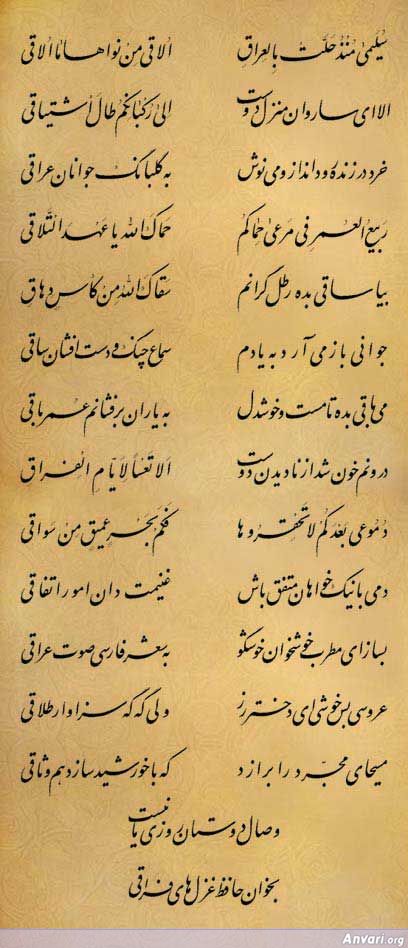 سُلیمیٰ مُنذُ حَلَّت بِالعِراقِ اُلاقی مِن نَواها ما اُلاقی
الا ای ساروان منزل دوست اِلیٰ رُکبانِکُم طالَ اشتیاقی
خرد در زنده رود انداز و می نوش به گلبانگ جوانان عراقی
ربیعُ العُمرِ فی مَرعیٰ حِماکُم حَماکَ اللهُ یا عَهدَ التَّلاقی
بیا ساقی بده رطل گرانم سَقاکَ اللهُ مِن کَأسٍ دِهاقِ
جوانی باز می آرد به یادم سماع چنگ و دست افشان ساقی
می باقی بده تا مست و خوشدل به یاران برفشانم عمر باقی
درونم خون شد از نادیدن دوست اَلا تَعساً لِاَیّامِ الفِراقِ
دُموعی بَعدَکُم لا تَحقِروها فَکَم بَحرٍ عَمیقٍ مِن سَواقی
دمی با نیک خواهان متفق باش غنیمت دان امور اتفاقی
بساز ای مطرب خوشخوان خوشگو به شعر فارسی صوت عراقی
عروسی بس خوشی ای دختر رز ولی گه گه سزاوار طلاقی
مسیحای مجرد را برازد که با خورشید سازد هم وثاقی
وصال دوستان روزی ما نیست
بخوان حافظ غزل های فراقی
Anvari.org